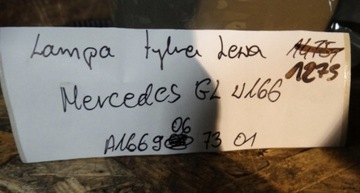 Lampa tylna Lewa
1275
Mercedes GL W166
A166906 73 01